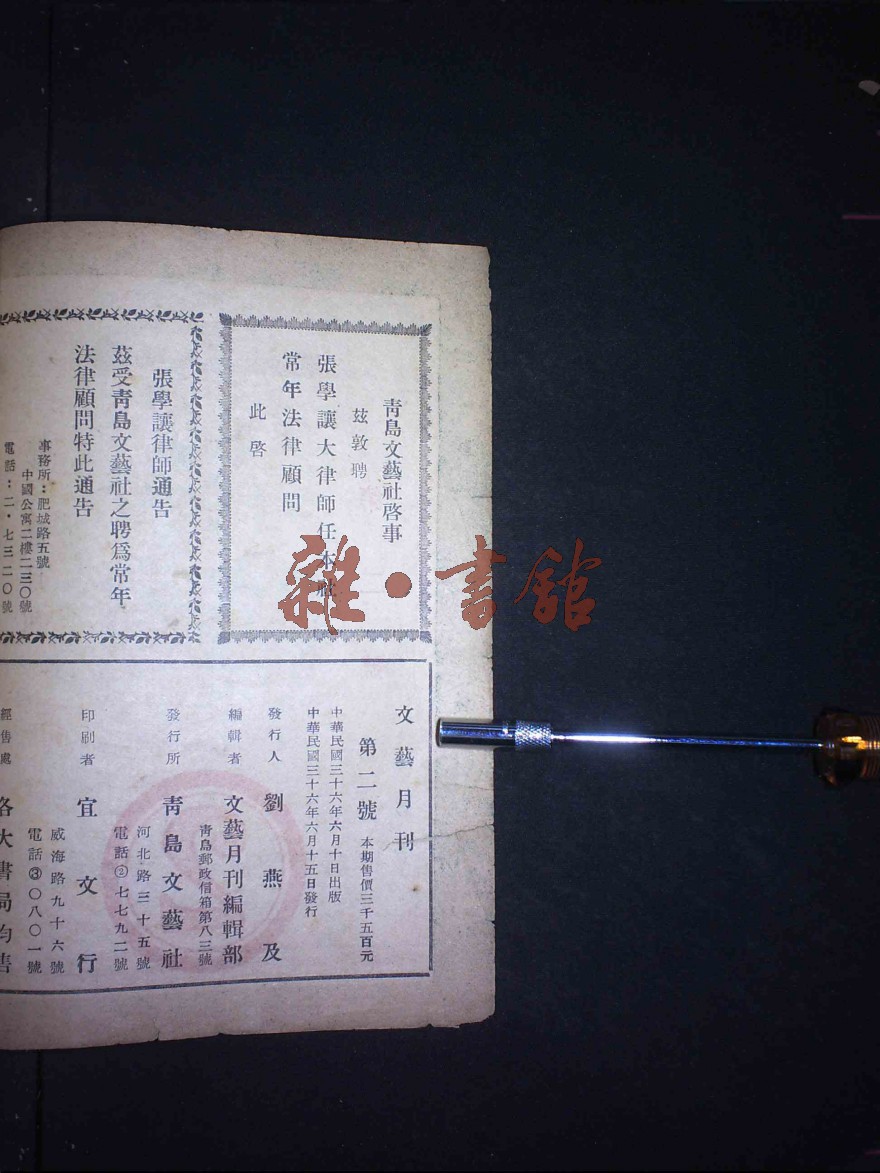 青島文藝社啓事
茲敦聘
張學讓大律師任本社
常年法律顧問
此啓
張學讓律師通告
茲受青島文藝社之聘爲常年
法律顧問特此通告
事務所：肥城路五號
中國公寓二樓二三〇號
電話：二・七三二〇號
文藝月刊
第二號 本期售價三千五百元
中華民國三十六年六月十日出版
中華民國三十六年六月十五日發行
發行人 劉燕及
編輯者 文藝月刊編輯部
青島郵政信箱第八三號
發行所 青島文藝社
河北路三十五號
電話②七七九二號
印刷者 宜文行
威海路九十六號
電話③〇八〇一號
經售處 各大書局均售
雜・書館